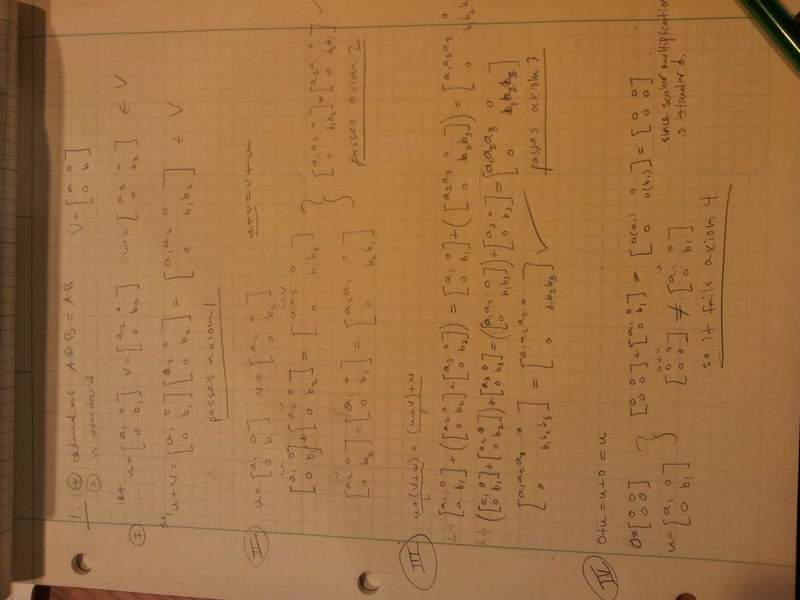 1. ⊕ defined as A⊕B = AB   V = [a 0; 0 b]
⊙ is standard
I let u = [a₁ 0; 0 b₁] v = [a₂ 0; 0 b₂] [a₃ 0; 0 b₃] ∈ V
so, u+v = [a₁ 0; 0 b₁][a₂ 0; 0 b₂] = [a₁a₂ 0; 0 b₁b₂] ∈ V
passes axiom 1
II u = [a₁ 0; 0 b₁] v = [a₂ 0; 0 b₂]   u+v = v+u
[a₁ 0; 0 b₁] + [a₂ 0; 0 b₂] = [a₁a₂ 0; 0 b₁b₂]
[a₂ 0; 0 b₂] + [a₁ 0; 0 b₁] = [a₂a₁ 0; 0 b₂b₁]
} [a₁a₂ 0; 0 b₁b₂] = [a₂a₁ 0; 0 b₂b₁] ✓
passes axiom 2
III u+(v+w) = (u+v)+w
[a₁ 0; 0 b₁] + ([a₂ 0; 0 b₂] + [a₃ 0; 0 b₃]) = [a₁ 0; 0 b₁] + ([a₂a₃ 0; 0 b₂b₃]) = [a₁a₂a₃ 0; 0 b₁b₂b₃]
([a₁ 0; 0 b₁] + [a₂ 0; 0 b₂]) + [a₃ 0; 0 b₃] = ([a₁a₂ 0; 0 b₁b₂]) + [a₃ 0; 0 b₃] = [a₁a₂a₃ 0; 0 b₁b₂b₃]
[a₁a₂a₃ 0; 0 b₁b₂b₃] = [a₁a₂a₃ 0; 0 b₁b₂b₃] ✓
passes axiom 3
IV 0+u = u+0 = u
0 = [0 0; 0 0]
u = [a₁ 0; 0 b₁]
} [0 0; 0 0] + [a₁ 0; 0 b₁] = [0(a₁) 0; 0 0(b₁)] = [0 0; 0 0]
since scalar multiplication
is standard.
0+u u
[0 0; 0 0] ≠ [a₁ 0; 0 b₁]
so it fails axiom 4